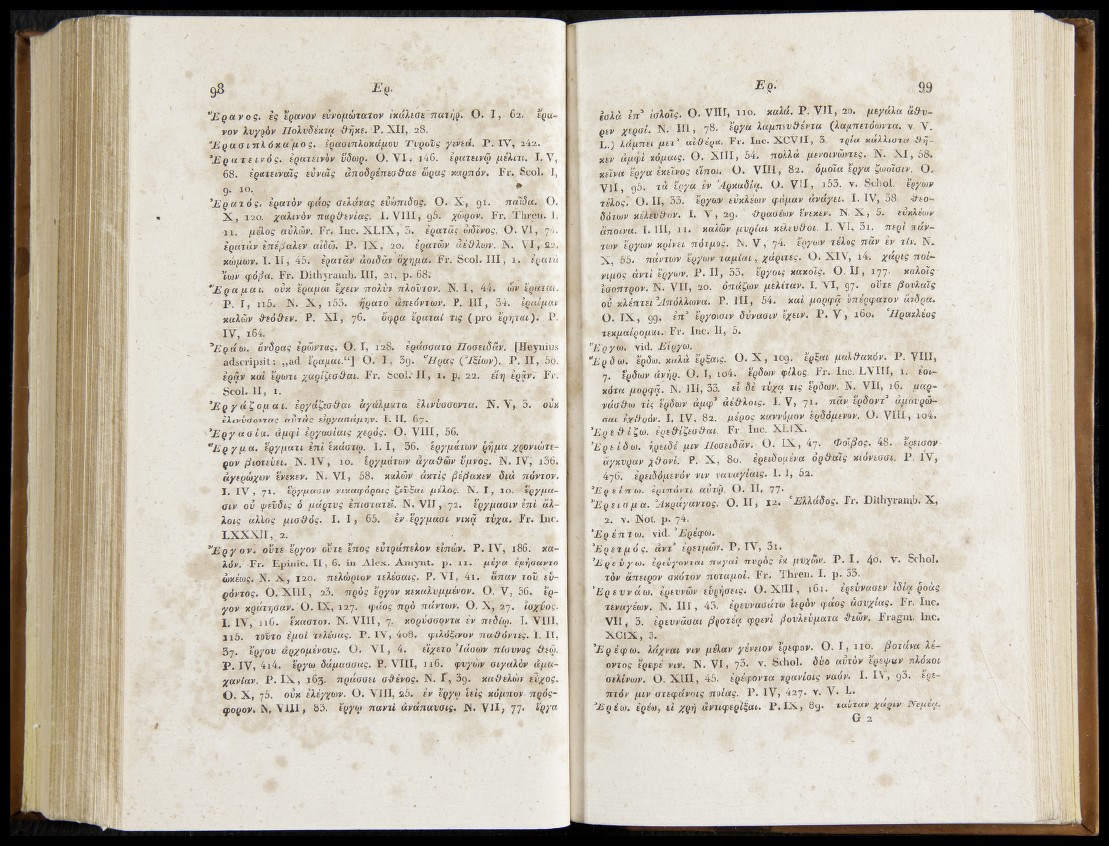 98 Ερ.
Ἔρανος. ἐς ἔρανον εὐνομώτατον ἐκάλεσε πατήρ. O. I, 62. ἔρα-
νον λυγρὸν Πολυδέκτᾳ θῆκε. P. XII, 28.
Ἐρασιπλόκαμος. ἐρασιπλοκάμου Τυροῦς γενεά. P. IV, 242.
Ἐρατεινός. ἐρατεινὸν ὕδωρ. O. VI, 146. ἐρατεινῷ μέλιτι. I. V,
68. ἐρατειναῖς εὐναῖς ἀποδρέπεσθαι ὥρας καρπόν. Fr. Scol. I,
9. 10.
Ἐρατός. ἐρατὸν φάος σελάνας εὐώπιδος. O. X, 91. παῖδα. O.
X, 120. χαλινὸν παρθενίας. I. VIII, 95. χῶρον. Fr. Thren. I.
11. μέλος αὐλῶν. Fr. Inc. XLIX, 3. ἐρατᾶς ὠδῖνος. O. VI, 74.
ἐρατὰν ἐπέβαλεν αἰδῶ. P. IX, 20. ἐρατῶν ἀέθλων. N. VI, 22.
κώμων. I. II, 45. ἐρατᾶν ἀοιδᾶν ὄχημα. Fr. Scol. III, 1. ἐρατᾷ
ἑων φόβα. Fr. Dithyramb. III, 21, p. 68.
Ἔραμαι. οὐκ ἔραμαι ἔχειν πολὺν πλοῦτον. N. I, 44. ὧν ἔραται.
P. I, 115. N. X, 153. ἤρατο ἀπεόντων. P. III, 34. ἐραίμαν
καλῶν θεόθεν. P. XI, 76. ὄφρα ἔραταί τις (pro ἔρηται). P.
IV, 164.
Ἐράω. ἄνδρας ἐρῶντας. O. I, 128. ἐράσσατο Ποσειδᾶν. [Heynius
adscripsit: „ad ἔραμαι.“] O. I, 39. Ἥρας (Ἰξίων). P. II, 50.
ἐρᾷν καὶ ἔρωτι χαρίζεσθαι. Fr. Scol. II, 1. p. 22. εἴη ἐρᾷν. Fr.
Scol. II, 1.
Ἐργάζομαι. ἐργάζεσθαι ἀγάλματα ἐλινύσοντα. N. V, 3. οὐκ
ἐλινύσοντας αὐτὰς εἰργασάμην. I. II, 67.
Ἐργασία. ἀμφὶ ἐργασίαις χερός. O. VIII, 56.
Ἔργμα. ἔργματι ἐπὶ ἑκάστῳ. I. I, 36. ἐργμάτων ῥῆμα χρονιώτε-
ρον βιοτεύει. N. IV, 10. ἐργμάτων ἀγαθῶν ὕμνος. N. IV, 136.
ἀγερώχων ἕνεκεν. N. VI, 58. καλῶν ἀκτὶς βέβακεν διὰ πόντον.
I. IV, 71. ἔργμασιν νικαφόροις ζεῦξαι μέλος. N. I, 10. ἔργμα-
σιν οὐ ψευδὶς ὁ μάρτυς ἐπιστατεῖ. N. VII, 72. ἔργμασιν ἐπὶ ἄλ-
λοις ἄλλος μισθός. I. I, 65. ἐν ἔργμασι νικᾷ τύχα. Fr. Inc.
LXXXII, 2.
Ἔργον. οὔτε ἔργον οὔτε ἔπος εὐτράπελον εἰπών. P. IV, 186. κα-
λόν. Fr. Epinic. II, 6. in Alex. Amynt. p. 11. μέγα ἐμήσαντο
ὠκέως. N. X, 120. πελώριον τελέσαις. P. VI, 41. ἅπαν τοῦ εὑ-
ρόντος. O. XIII, 23. πρὸς ἔργον κεκαλυμμένον. O. V, 36. ἔρ-
γον κράτησαν. O. IX, 127. φάος πρὸ πάντων. O. X, 27. ἰσχύος.
I. IV, 116. ἕκαστον. N. VIII, 7. κορύσσοντα ἐν πεδίῳ. I. VIII,
115. τοῦτο ἐμοὶ τελέσαις. P. IV, 408. φιλόξενον παθόντες. I. II,
37. ἔργου ἀρχομένους. O. VI, 4. εἴχετο Ἰάσων πίσυνος θεῷ.
P. IV, 414. ἔργω δάμασσας. P. VIII, 116. φυγὼν σιγαλὸν ἀμα-
χανίαν. P. IX, 163. πράσσει σθένος. N. I, 39. καθελὼν εὖχος.
O. X, 75. οὐκ ἐλέγχων. O. VIII, 25. ἐν ἔργῳ ἱεὶς κόμπον πρόσ-
φορον. N. VIII, 83. ἔργῳ παντὶ ἀνάπαυσις. N. VII, 77. ἔργα
Ερ. 99
ἐσλὰ ἐπ’ ἐσλοῖς. O. VIII, 110. καλά. P. VII, 20. μεγάλα ἄθυ-
ρεν χερσί. N. III, 78. ἔργα λαμπευθέντα (λαμπετόωντα. v. V.
L.) λάμπει μετ’ αἰθέρα. Fr. Inc. XCVII, 3. τρία κάλλιστα θῆ-
κεν ἀμφὶ κόμαις. O. XIII, 54. πολλὰ μενοινῶντες. N. XI, 58.
κεῖνα ἔργα ἐκεῖνος εἴποι. O. VIII, 82. ὁμοῖα ἔργα ζωοῖσιν. O.
VII, 95. τὰ ἔργα ἐν Ἀρκαδίᾳ. O. VII, 153. v. Schol. ἔργων
τέλος. O. II, 33. ἔργων εὐκλέων φάμαν ἀνάγει. I. IV, 38. θεο-
δότων κέλευθον. I. V, 29. θρασέων ἕνεκεν. N. X, 5. εὐκλέων
ἄποινα. I. III, 11. καλῶν μυρίαι κέλευθοι. I. VI, 31. περὶ πάν-
των ἔργων κρίνει πότμος. N. V, 74. ἔργων τέλος πᾶν ἐν τίν. N.
X, 55. πάντων ἔργων ταμίαι, χάριτες. O. XIV, 14. χάρις ποί-
νιμος ἀντὶ ἔργων. P. II, 33. ἔργοις κακοῖς. O. II, 177. καλοῖς
ἔσοπτρον. N. VII, 20. ὀπάζων μελέταν. I. VI, 97. οὔτε βουλαῖς
οὐ κλέπτει Ἀπόλλωνα. P. III, 54. καὶ μορφᾷ ὑπέρφατον ἄνδρα.
O. IX, 99. ἐπ’ ἔργοισιν δύνασιν ἔχειν. P. V, 160. Ἡρακλέος
τεκμαίρομαι. Fr. Inc. II, 5.
Ἔργω. vid. Εἴργω.
Ἔρδω. ἔρδω. καλὰ ἔρξαις. O. X, 109. ἔρξαι μαλθακόν. P. VIII,
7. ἔρδων ἀνήρ. O. I, 104. ἔρδων φίλος. Fr. Inc. LVIII, 1. ἐοι-
κότα μορφᾷ. N. III, 33. εἰ δὲ τύχᾳ τις ἔρδων. N. VII, 16. μαρ-
νάσθω τις ἔρδων ἀμφ’ ἀέθλοις. I. V, 71. πᾶν ἔρδοντ’ ἀμαυρῶ-
σαι ἐχθρόν. I. IV, 82. μέρος καννόμον ἐρδόμενον. O. VIII, 104.
Ἐρεθίζω. ἐρεθίζεσθαι. Fr. Inc. XLIX.
Ἐρείδω. ἤρειδέ μιν Ποσειδᾶν. O. IX, 47. Φοῖβος. 48. ἔρεισον
ἄγκυραν χθονί. P. X, 80. ἐρειδομένα ὀρθαῖς κιόνεσσι. P. IV,
476. ἐρειδόμενόν νιν ναυαγίαις. I. I, 52.
Ἐρείπω. ἐριπόντι αὐτῷ. O. II, 77.
Ἔρεισμα. Ἀκράγαντος. O. II, 12. Ἑλλάδος. Fr. Dithyramb. X,
2. v. Not. p. 74.
Ἐρέπτω. vid. Ἐρέφω.
Ἐρετμός. ἀντ’ ἐρετμῶν. P. IV, 31.
Ἐρεύγω. ἐρεύγονται παγαὶ πυρὸς ἐκ μυχῶν. P. I. 40. v. Schol.
τὸν ἄπειρον σκότον ποταμοί. Fr. Thren. I. p. 33.
Ἐρευνάω. ἐρευνῶν εὑρήσεις. O. XIII, 161. ἐρεύνασεν ἰδίᾳ ῥοὰς
τεναγέων. N. III, 43. ἐρευνασάτω ἱερὸν φάος ἀσυχίας. Fr. Inc.
VII, 3. ἐρευνᾶσαι βροτέᾳ φρενὶ βουλεύματα θεῶν. Fragm. Inc.
XCIX, 3.
Ἐρέφω. λάχναι νιν μέλαν γένειον ἔρεφον. O. I, 110. βοτάνα λέ-
οντος ἔρεφέ νιν. N. VI, 73. v. Schol. δύο αὐτὸν ἔρεψαν πλόκοι
σελίνων. O. XIII, 45. ἐρέφοντα κρανίοις ναόν. I. IV, 93. ἐρε-
πτόν μιν στεφάνοις ποίας. P. IV, 427. v. V. L.
Ἐρέω. ἐρέω, εἰ χρὴ ἀντιφερίξαι. P. IX, 89. ταύταν χάριν Νεμέᾳ.
G 2